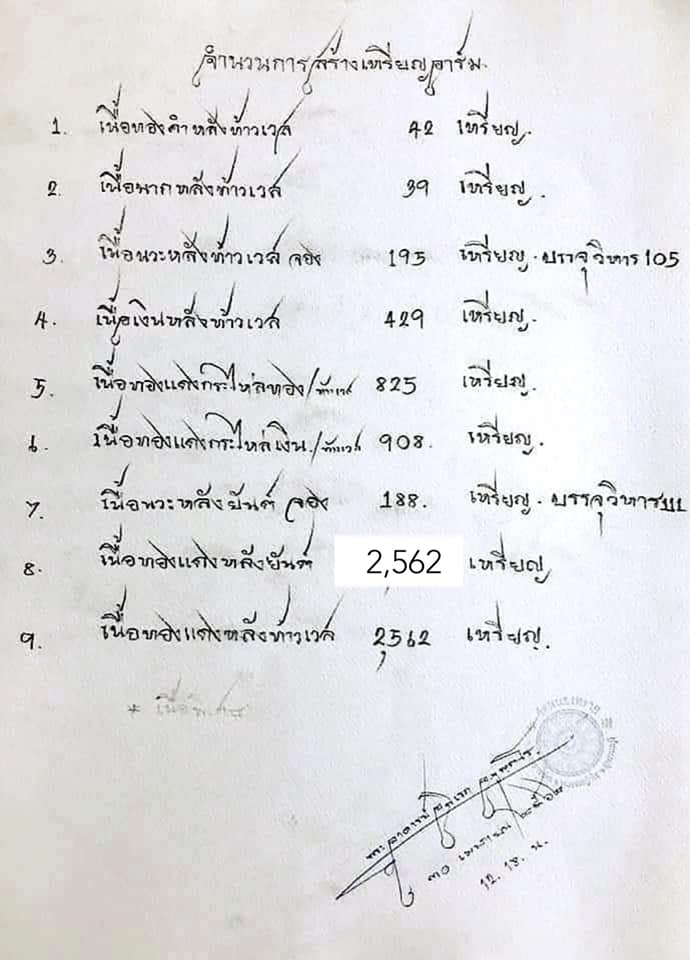 จำนวนการสร้างเหรียญอาร์ม.
1. เนื้อทองคำหลังท้าวเวส 42 เหรียญ.
2. เนื้อนากหลังท้าวเวส 39 เหรียญ.
3. เนื้อนวะหลังท้าวเวส จอง 195 เหรียญ. บรรจุวิหาร 105
4. เนื้อเงินหลังท้าวเวส 429 เหรียญ.
5. เนื้อทองแดงกระไหล่ทอง/ท้าวเวส 825 เหรียญ.
6. เนื้อทองแดงกระไหล่เงิน/ท้าวเวส 908. เหรียญ.
7. เนื้อนวะหลังยันต์ จอง 188. เหรียญ. บรรจุวิหาร 111
8. เนื้อทองแดงหลังยันต์ 2,562 เหรียญ
9. เนื้อทองแดงหลังท้าวเวส 2,562 เหรียญ.
พระอาจารย์
๓๐ เมษายน ๒๕๖๒
12. 18. น.